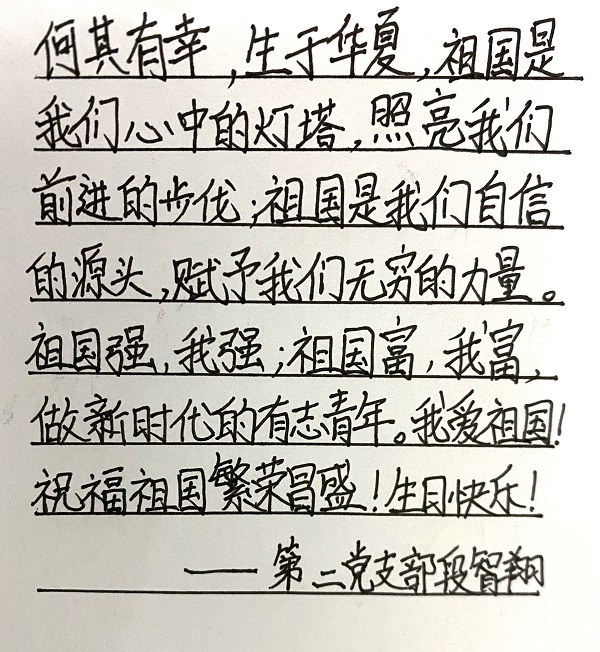 何其有幸,生于华夏,祖国是
我们心中的灯塔,照亮我们
前进的步伐;祖国是我们自信
的源头,赋予我们无穷的力量。
祖国强,我强;祖国富,我富,
做新时代的有志青年。我爱祖国!
祝福祖国繁荣昌盛!生日快乐!
——第二党支部段智翔